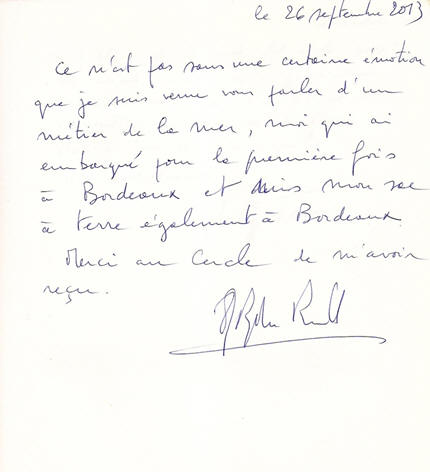 le 26 septembre 2013
Ce n'est pas sans une certaine émotion
que je suis venu vous parler d'un
métier de la mer, moi qui ai
embarqué pour la première fois
à Bordeaux et mis mon sac
à terre également à Bordeaux.
Merci au Cercle de m'avoir
reçu.